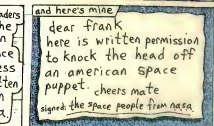 aders
he
n
ace
ess
tten
n
a
and here's mine
dear frank
here is written permission
to knock the head off
an american space
puppet. cheers mate
signed: the space people from nasa